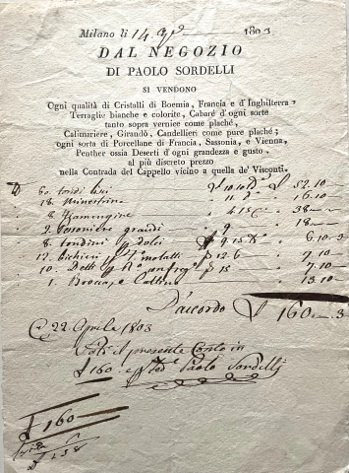 Milano li 14 Ap.le 1803
DAL NEGOZIO
DI PAOLO SORDELLI
SI VENDONO
Ogni qualità di Cristalli di Boemia, Francia e d'Inghilterra,
Terraglie bianche e colorite, Cabaré d'ogni sorte
tanto sopra vernice come plaché,
Calimariere, Girandò, Candellieri come pure plaché;
ogni sorta di Porcellane di Francia, Sassonia, e Vienna,
Penther ossia Deserti d'ogni grandezza e gusto.
al più discreto prezzo
nella Contrada del Cappello vicino a quella de' Visconti.
60. tondi £ 52.10
18. Minestrine 16.10
8. 4.15 38
2. grandi 9 18
8. tondini p dolci 6.10.3
12. bichieri 12.6 7.10
10. Detti p 15 7.10
1. Brocca, e Cattino 13.10
D'accordo £ 160..3
22. Aprile 1803
il presente Conto in
£ 160 Paolo Sordelli
£ 160